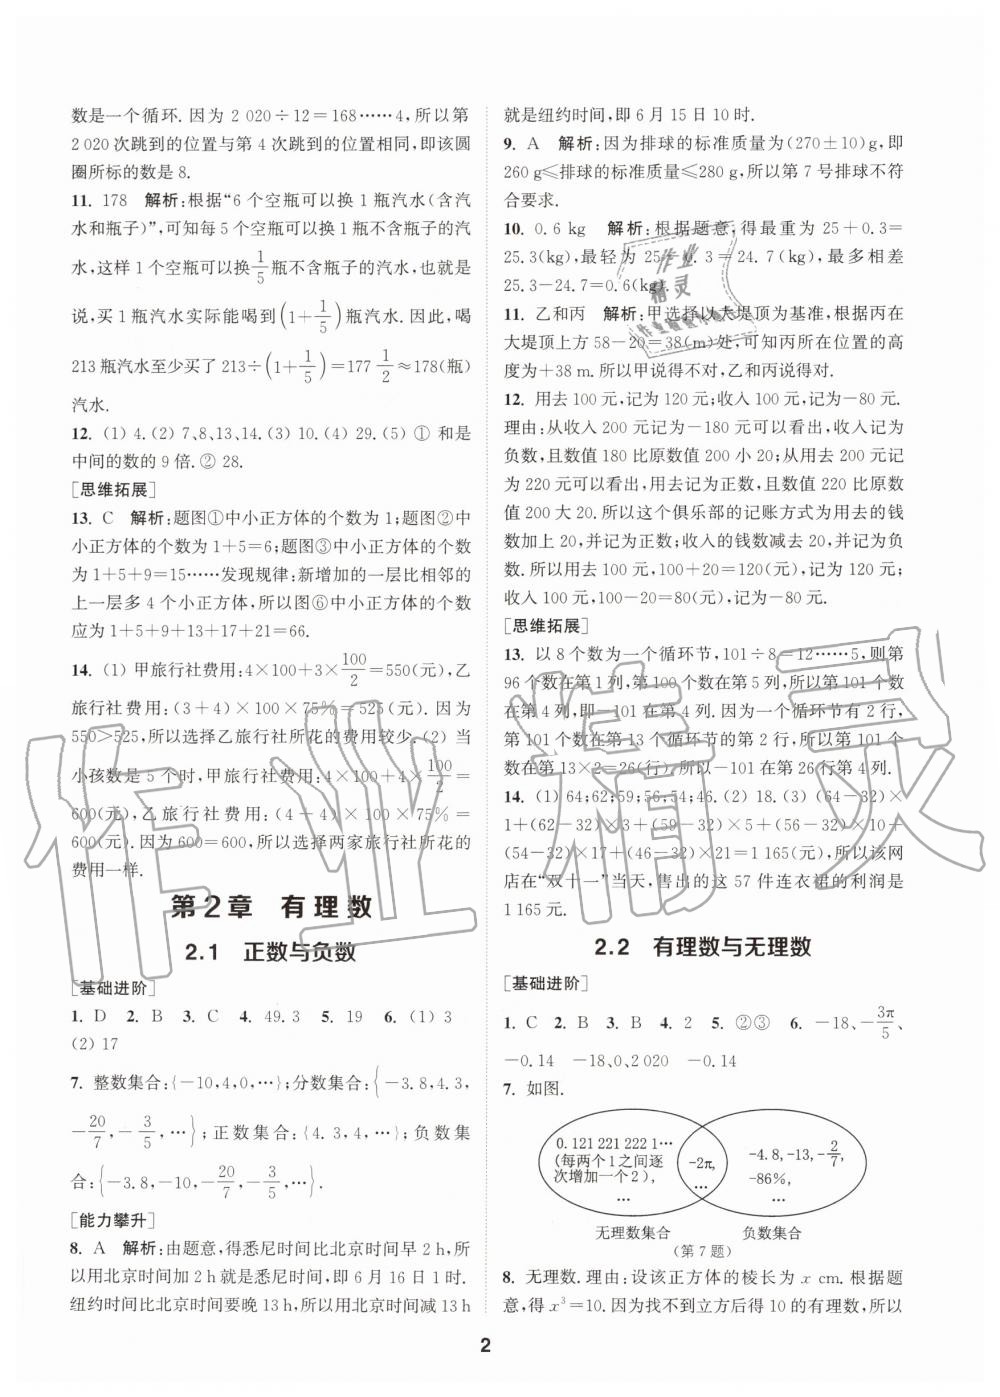 数是一个循环. 因为 2 020÷12=168……4, 所以第
2 020 次跳到的位置与第 4 次跳到的位置相同, 即该圆
圈所标的数是 8.
11. 178 解析: 根据“6 个空瓶可以换 1 瓶汽水(含汽
水和瓶子)”, 可知每 5 个空瓶可以换 1 瓶不含瓶子的汽
水, 这样 1 个空瓶可以换 1/5 瓶不含瓶子的汽水, 也就是
说, 买 1 瓶汽水实际能喝到(1+1/5)瓶汽水. 因此, 喝
213 瓶汽水至少买了 213÷(1+1/5)=177 1/2≈178(瓶)
汽水.
12. (1) 4. (2) 7、8、13、14. (3) 10. (4) 29. (5) ① 和是
中间的数的 9 倍. ② 28.
[思维拓展]
13. C 解析: 题图①中小正方体的个数为 1; 题图②中
小正方体的个数为 1+5=6; 题图③中小正方体的个数
为 1+5+9=15……发现规律: 新增加的一层比相邻的
上一层多 4 个小正方体, 所以图⑥中小正方体的个数
应为 1+5+9+13+17+21=66.
14. (1) 甲旅行社费用: 4×100+3×100/2=550(元), 乙
旅行社费用: (3+4)×100×75%=525(元). 因为
550>525, 所以选择乙旅行社所花的费用较少. (2) 当
小孩数是 5 个时, 甲旅行社费用: 4×100+4×100/2=
600(元), 乙旅行社费用: (4+4)×100×75%=
600(元). 因为 600=600, 所以选择两家旅行社所花的
费用一样.
第 2 章 有理数
2.1 正数与负数
[基础进阶]
1. D 2. B 3. C 4. 49.3 5. 19 6. (1) 3
(2) 17
7. 整数集合: {-10, 4, 0, …}; 分数集合: {-3.8, 4.3,
-20/7, -3/5, …}; 正数集合: {4.3, 4, …}; 负数集
合: {-3.8, -10, -20/7, -3/5, …}.
[能力攀升]
8. A 解析: 由题意, 得悉尼时间比北京时间早 2 h, 所
以用北京时间加 2 h 就是悉尼时间, 即 6 月 16 日 1 时.
纽约时间比北京时间要晚 13 h, 所以用北京时间减 13 h
就是纽约时间, 即 6 月 15 日 10 时.
9. A 解析: 因为排球的标准质量为(270±10)g, 即
260 g≤排球的标准质量≤280 g, 所以第 7 号排球不符
合要求.
10. 0.6 kg 解析: 根据题意, 得最重为 25+0.3=
25.3(kg), 最轻为 25-0.3=24.7(kg), 最多相差
25.3-24.7=0.6(kg).
11. 乙和丙 解析: 甲选择以大堤顶为基准, 根据丙在
大堤顶上方 58-20=38(m)处, 可知丙所在位置的高
度为+38 m. 所以甲说得不对, 乙和丙说得对.
12. 用去 100 元, 记为 120 元; 收入 100 元, 记为-80 元.
理由: 从收入 200 元记为-180 元可以看出, 收入记为
负数, 且数值 180 比原数值 200 小 20; 从用去 200 元记
为 220 元可以看出, 用去记为正数, 且数值 220 比原数
值 200 大 20. 所以这个俱乐部的记账方式为用去的钱
数加上 20, 并记为正数; 收入的钱数减去 20, 并记为负
数. 所以用去 100 元, 100+20=120(元), 记为 120 元;
收入 100 元, 100-20=80(元), 记为-80 元.
[思维拓展]
13. 以 8 个数为一个循环节, 101÷8=12……5, 则第
96 个数在第 1 列, 第 100 个数在第 5 列, 所以第 101 个数
在第 4 列, 即-101 在第 4 列. 因为一个循环节有 2 行,
第 101 个数在第 13 个循环节的第 2 行, 所以第 101 个
数在第 13×2=26(行). 所以-101 在第 26 行第 4 列.
14. (1) 64; 62; 59; 56; 54; 46. (2) 18. (3) (64-32)×
1+(62-32)×3+(59-32)×5+(56-32)×10+
(54-32)×17+(46-32)×21=1 165(元), 所以该网
店在“双十一”当天, 售出的这 57 件连衣裙的利润是
1 165 元.
2.2 有理数与无理数
[基础进阶]
1. C 2. B 3. B 4. 2 5. ②③ 6. -18、-3π/5、
-0.14 -18、0、2 020 -0.14
7. 如图.
0.121 221 222 1…
(每两个 1 之间逐
次增加一个 2),
…
-2π,
…
-4.8, -13, -2/7,
-86%,
…
无理数集合 负数集合
(第 7 题)
8. 无理数. 理由: 设该正方体的棱长为 x cm. 根据题
意, 得 x³=10. 因为找不到立方后得 10 的有理数, 所以
2
作业精灵
作业
精灵